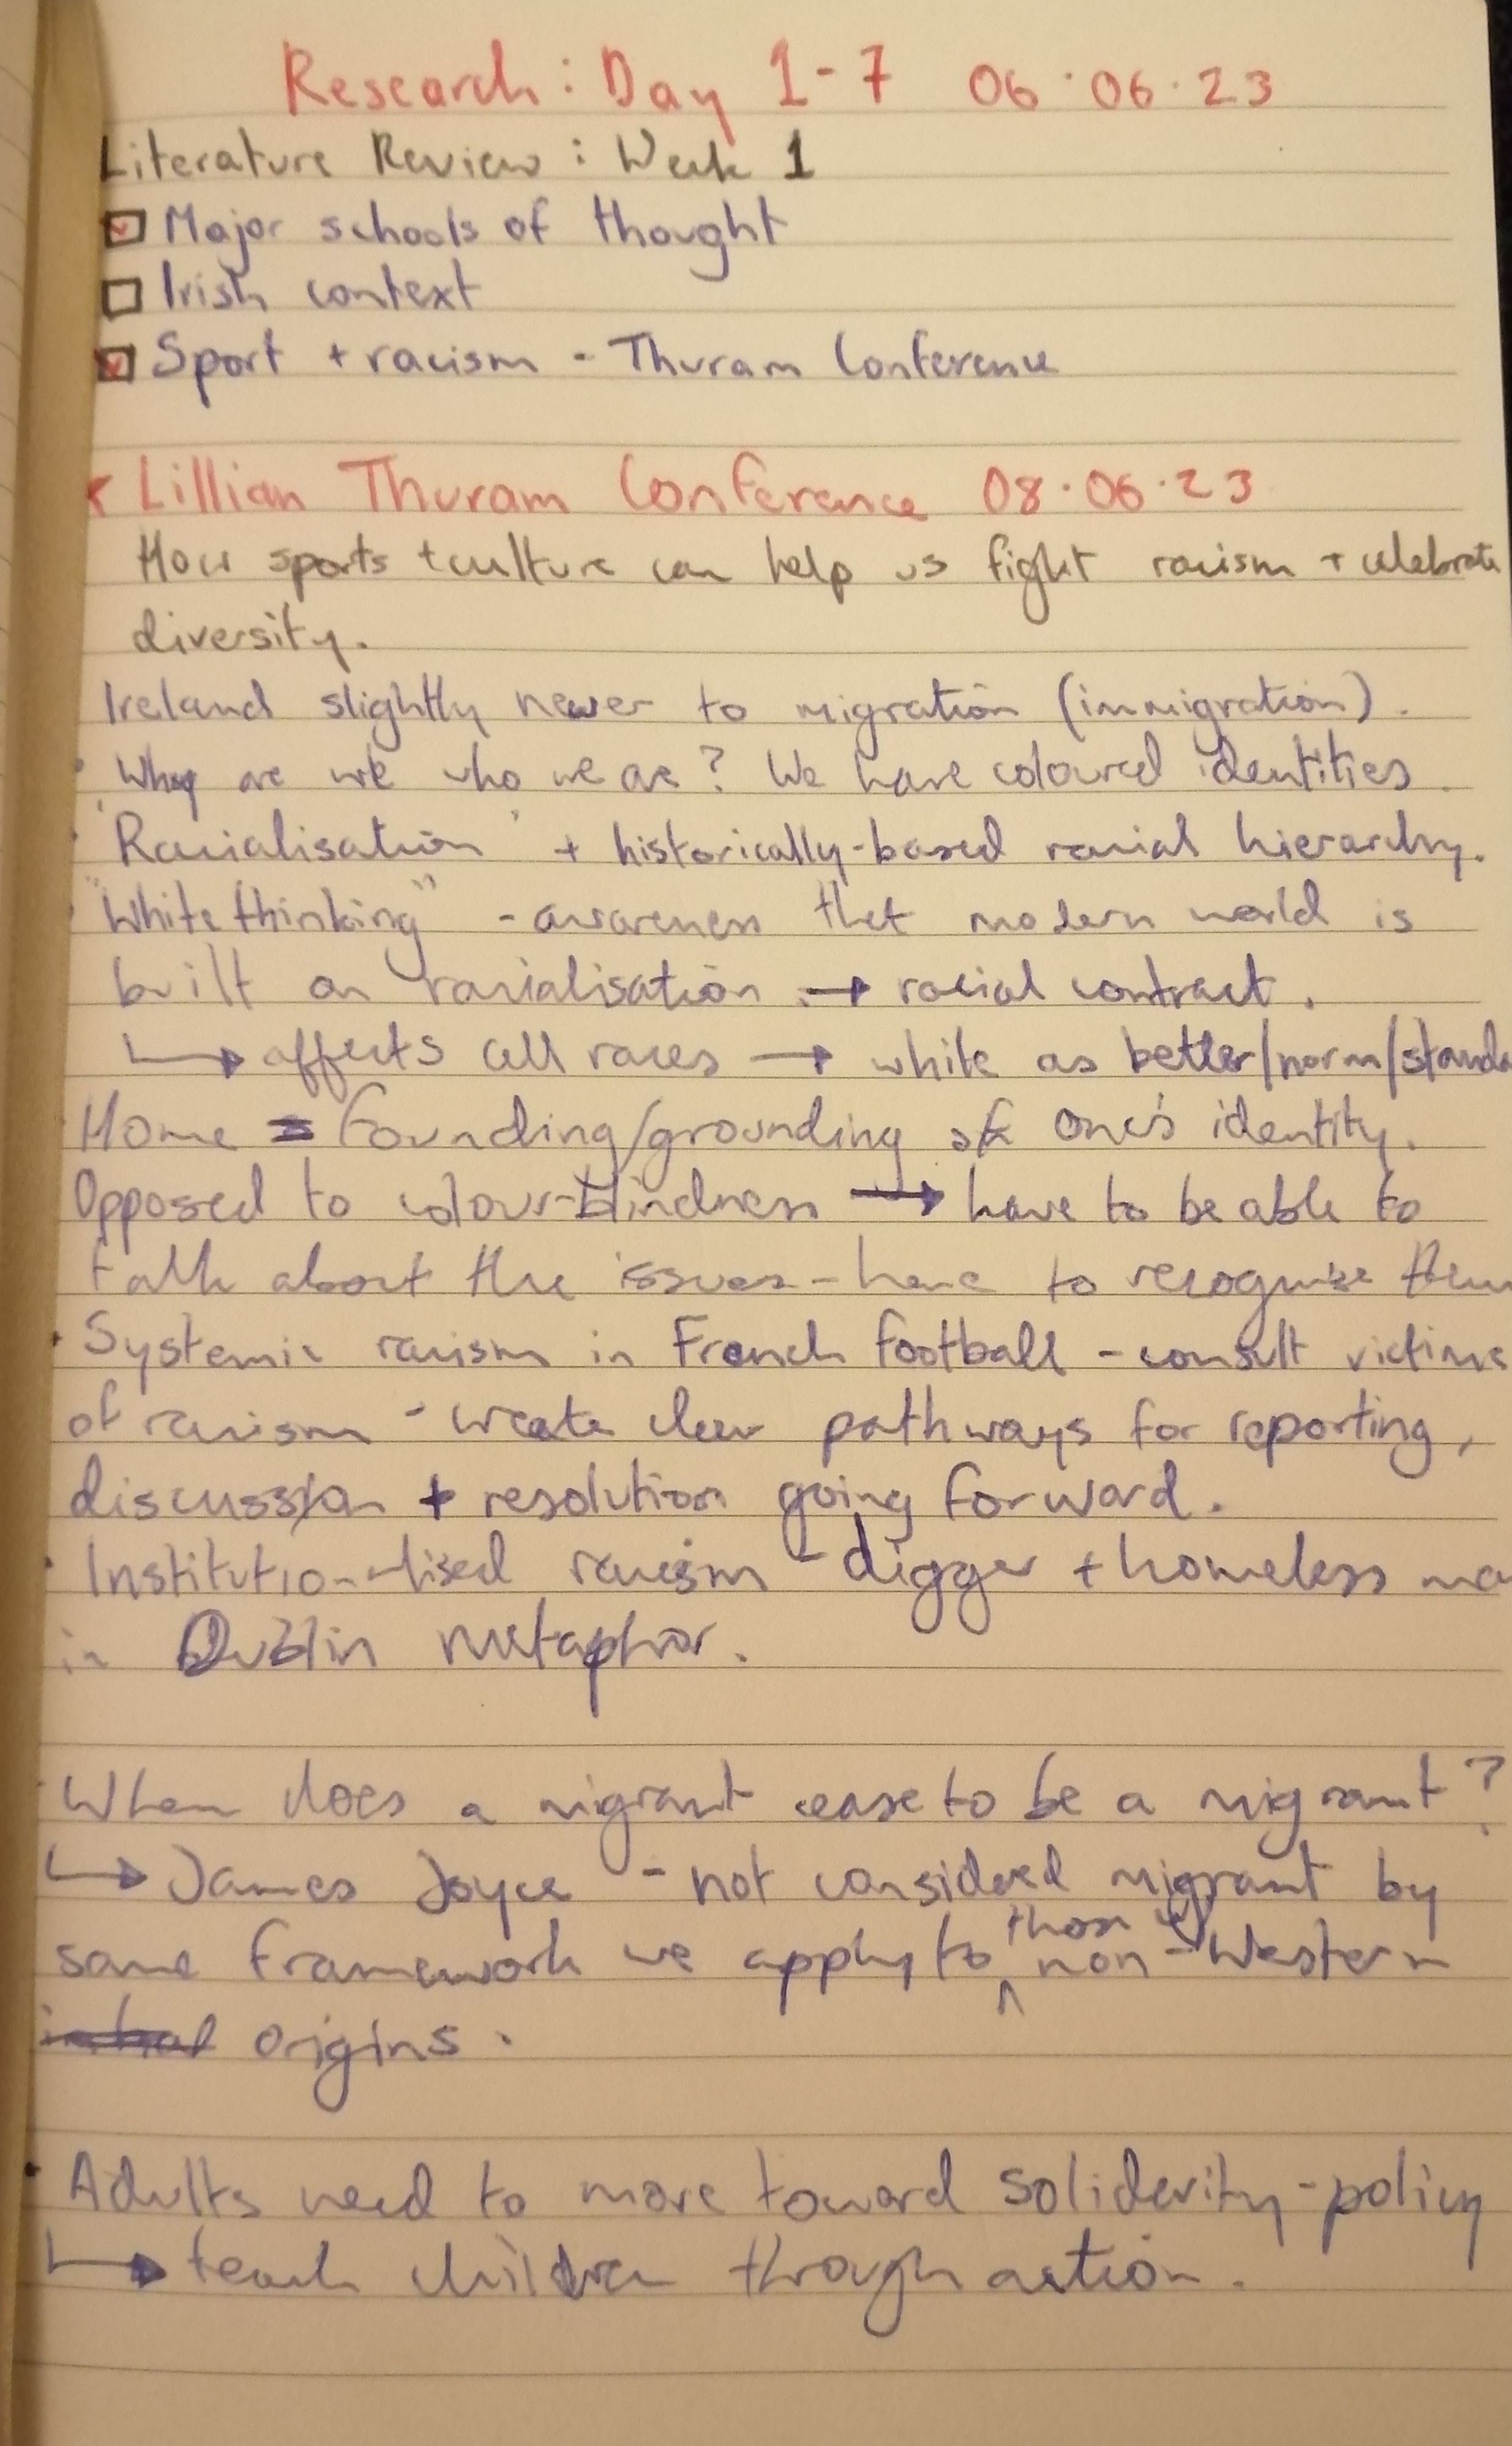 Research: Day 1-7 06.06.23
Literature Review: Week 1
☑ Major schools of thought
☐ Irish context
☑ Sport + racism - Thuram Conference
Lillian Thuram Conference 08.06.23
How sports + culture can help us fight racism + celebrate
diversity.
Ireland slightly newer to migration (immigration).
• Why are we who we are? We have coloured identities.
• 'Racialisation' + historically-based racial hierarchy.
• "White thinking" - awareness that modern world is
built on racialisation → racial contract.
↳ affects all races → white as better/norm/standa
Home = Founding/grounding of one's identity.
Opposed to colour-blindness → have to be able to
talk about the issues - have to recognise them
• Systemic racism in French football - consult victims
of racism - create clear pathways for reporting,
discussion + resolution going forward.
• Institutionalised racism - digger + homeless ma
in Dublin metaphor.
• When does a migrant cease to be a migrant?
↳ James Joyce - not considered migrant by
same framework we apply to those non-Western
origins.
• Adults need to move toward soliderity - policy
↳ teach children through action.